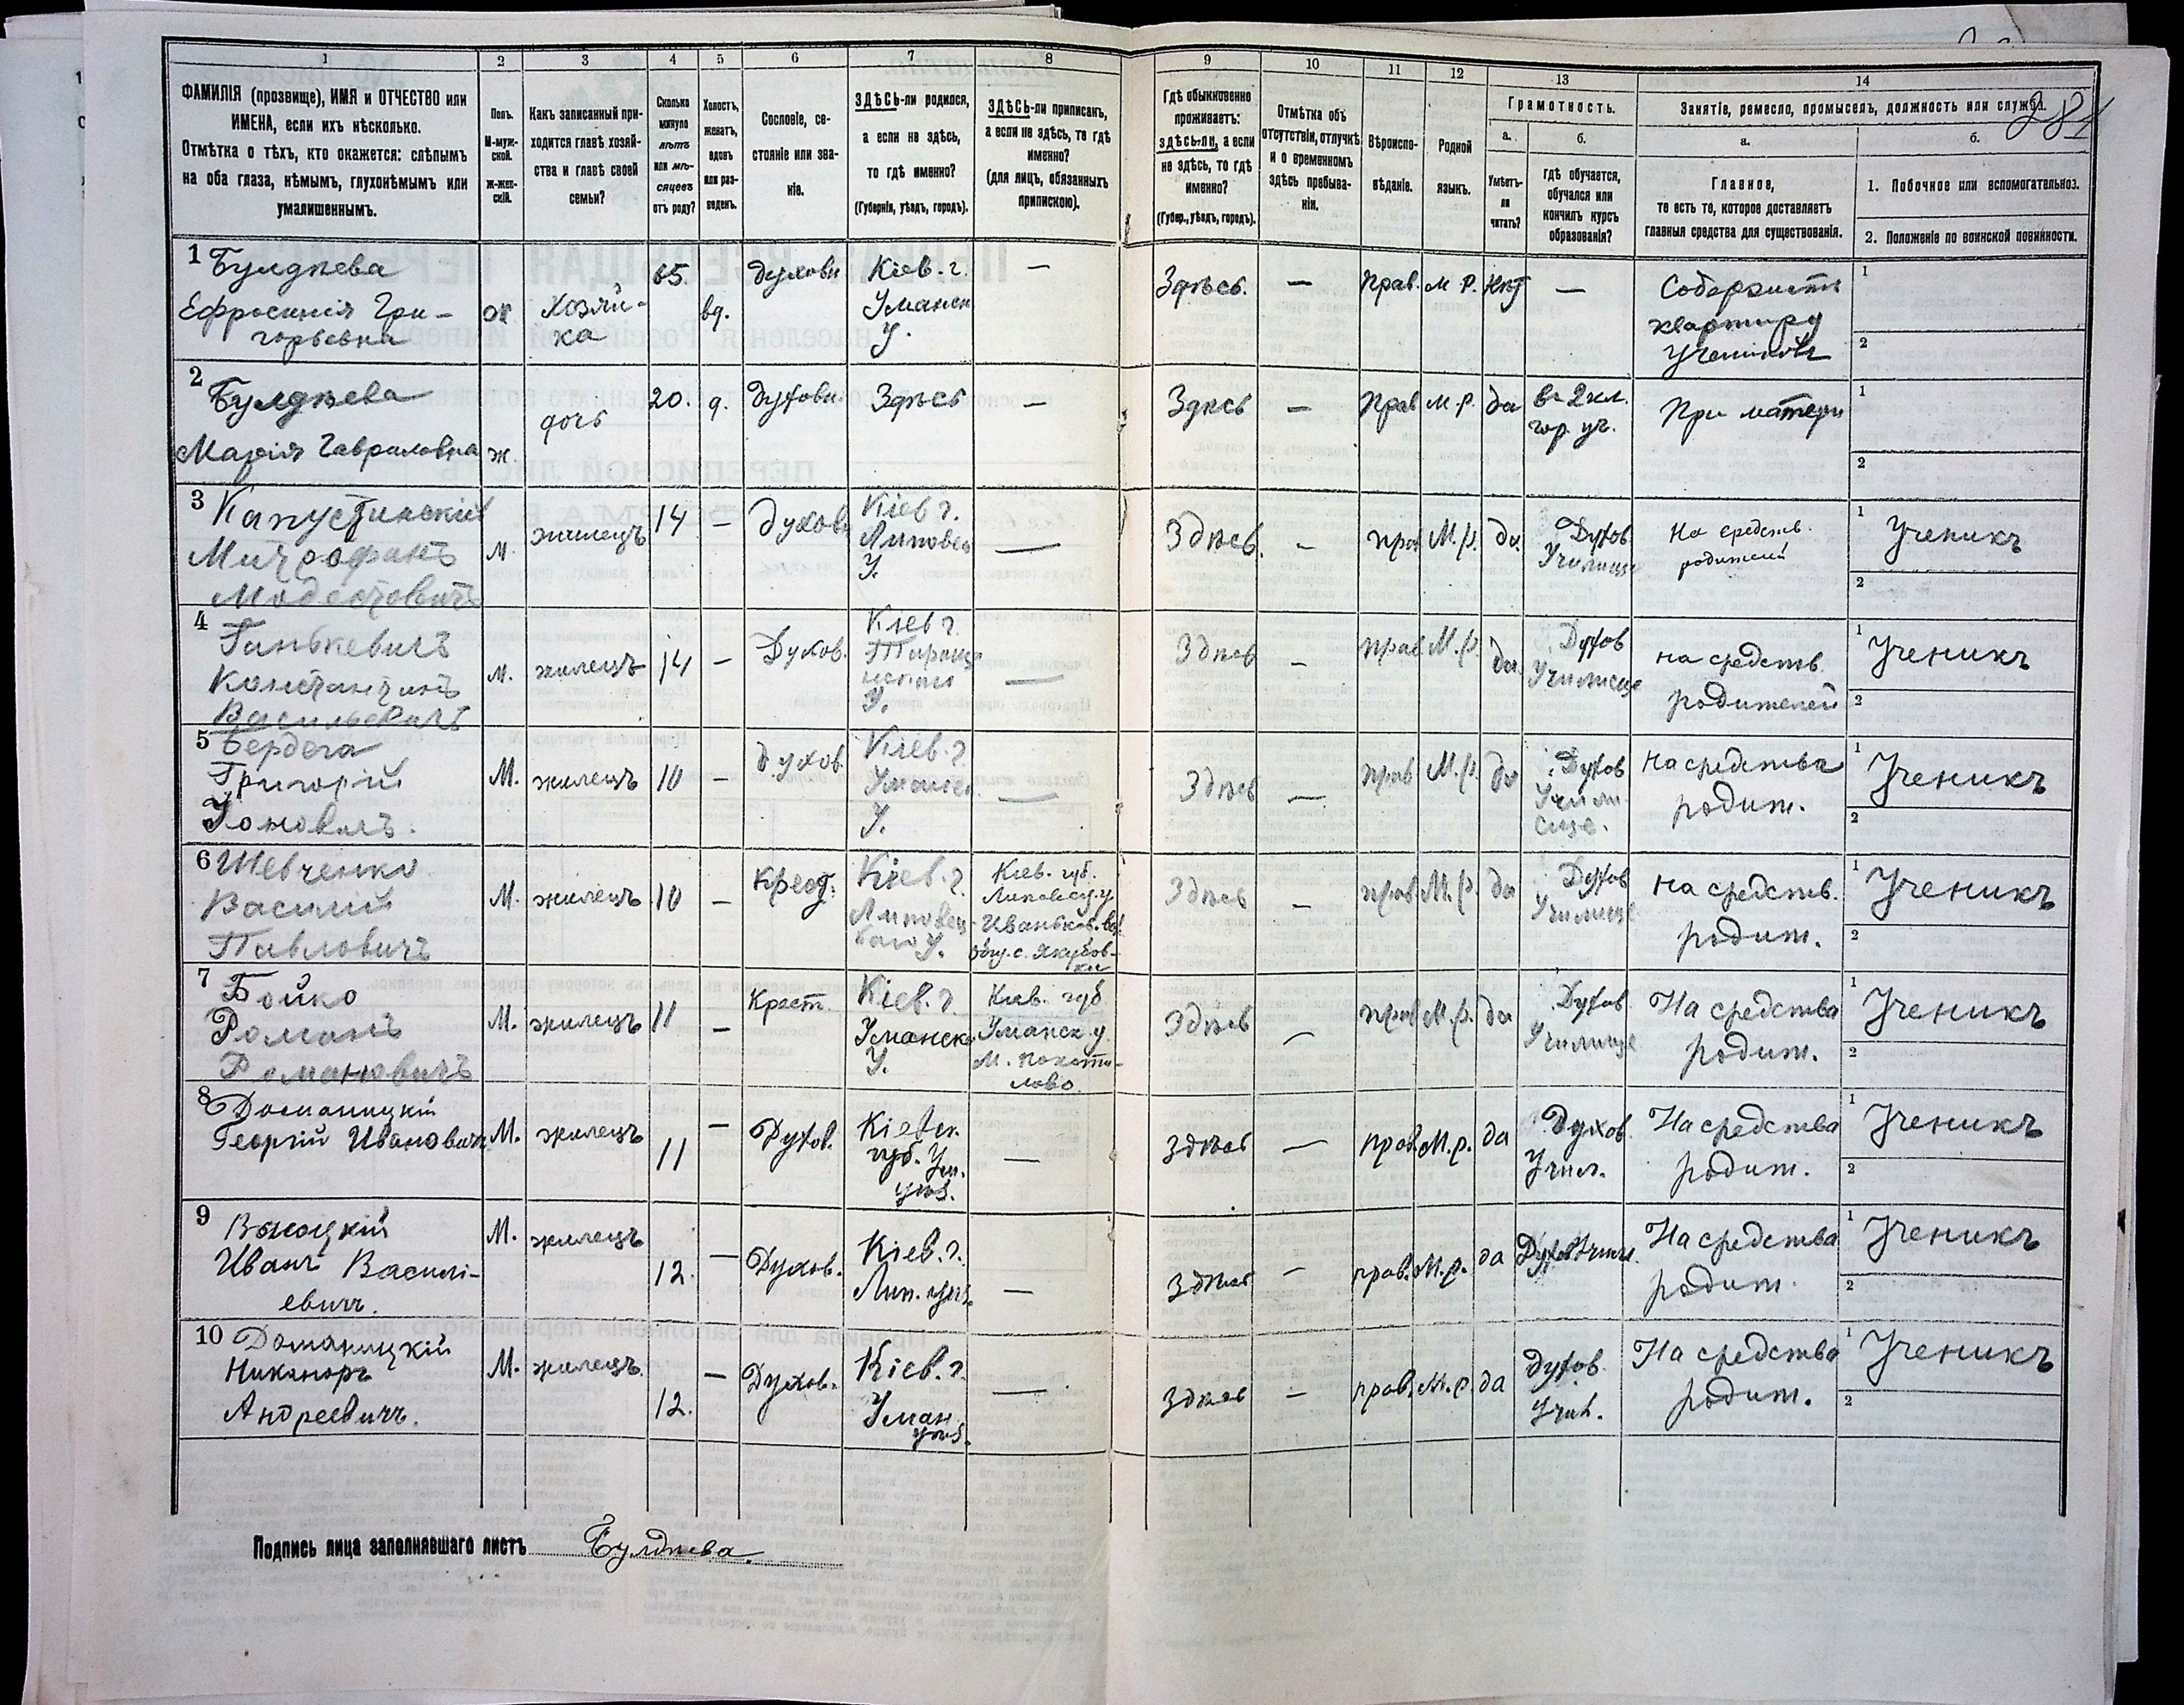 1
2
3
4
5
6
7
8
9
10
11
12
13
14
ФАМИЛІЯ (прозвище), ИМЯ и ОТЧЕСТВО или
ИМЕНА, если ихъ нѣсколько.
Отмѣтка о тѣхъ, кто окажется: слѣпымъ
на оба глаза, нѣмымъ, глухонѣмымъ или
умалишеннымъ.
Полъ.
М-муж-
ской.
Ж-жен-
скій.
Какъ записанный при-
ходится главѣ хозяй-
ства и главѣ своей
семьи?
Сколько
минуло
лѣтъ
или мѣ-
сяцевъ
отъ роду?
Холостъ,
женатъ,
вдовъ
или раз-
веденъ.
Сословіе, со-
стояніе или зва-
ніе.
ЗДѢСЬ-ли родился,
а если не здѣсь,
то гдѣ именно?
(Губернія, уѣздъ, городъ).
ЗДѢСЬ-ли приписанъ,
а если не здѣсь, то гдѣ
именно?
(для лицъ, обязанныхъ
припискою).
Гдѣ обыкновенно
проживаетъ:
здѣсь-ли, а если
не здѣсь, то гдѣ
именно?
(Губер., уѣздъ, городъ).
Отмѣтка объ
отсутствіи, отлучкѣ
и о временномъ
здѣсь пребыва-
ніи.
Вѣроиспо-
вѣданіе.
Родной
языкъ.
Грамотность.
а.
Умѣетъ-
ли
читать?
б.
гдѣ обучается,
обучался или
кончилъ курсъ
образованія?
Занятіе, ремесло, промыселъ, должность или служба.
а.
Главное,
то есть то, которое доставляетъ
главныя средства для существованія.
б.
1. Побочное или вспомогательное.
2. Положеніе по воинской повинности.
1 Булдѣева
Ефросинія Гри-
горьевна
ж
Хозяй-
ка
65.
вд.
духовн
Кіев. г.
Уманск
У.
—
Здѣсь.
—
Прав.
м р.
нѣт
—
Содержитъ
квартиру
учениковъ
1
2
2 Булдѣева
Марія Гавриловна
ж.
дочь
20.
д.
Духовн.
Здѣсь
—
Здѣсь
—
Прав
м.р.
да
въ 2 кл.
гор. уч.
При матери
1
2
3 Капустинскій
Митрофанъ
Модестовичъ
М.
жилецъ
14
—
духовн
Кіев г.
Липовец
У.
—
Здѣсь.
-
прав
М.р.
да.
Духов
Училище
На средств.
родителей
1 Ученикъ
2
4 Ганькевичъ
Константинъ
Васильевичъ
М.
жилецъ
14
—
Духов.
Кіев г.
У.
—
Здѣсь
-
прав
М.р.
да.
Духов
Училище
на средств.
родителей
1 Ученикъ
2
5 Бердега
Григорій
Іоновичъ.
М.
жилецъ
10
—
духов.
Кіев. г.
Уманск.
У.
—
Здѣсь
—
прав
М.р.
да
Духов
Учили-
ще.
На средства
родит.
1 Ученикъ
2
6 Шевченко
Василій
Павловичъ
М.
жилецъ
10
—
Крест.
Кіев. г.
Липовец-
каго У.
Кіев. губ.
Липовец. у
Иваньков. вол.
общ. с. Якубов-
ки
Здѣсь
—
прав
М.р.
да
Духов
Училище
на средств.
родит.
1 Ученикъ
2
7 Бойко
Романъ
Романовичъ
М.
жилецъ
11
—
Крест.
Кіев. г.
Уманск.
У.
Кіев. губ
Уманск. у.
М. Покоти-
лово.
Здѣсь
—
прав
М.р.
да
Духов
Училище
На средства
родит.
1 Ученикъ
2
8 Доманицкій
Георгій Ивановичъ
М.
жилецъ
11
—
Духов.
Кіевск.
губ. Ум.
уѣз.
—
Здѣсь
—
прав.
М.р.
да
Духов.
Учил.
На средства
родит.
1 Ученикъ
2
9 Высоцкій
Иванъ Василі-
евичъ.
М.
жилецъ
12.
—
Духов.
Кіев. г.
Лип. уѣз.
—
Здѣсь
—
прав.
М.р.
да
Духов Учил.
На средства
родит.
1 Ученикъ
2
10 Доманицкій
Никаноръ
Андреевичъ.
М.
жилецъ.
12.
—
Духов.
Кіев. г.
Уман.
уѣз.
—
Здѣсь
—
прав.
М.р
да
Духов.
Учил.
На средства
родит.
1 Ученикъ
2
Подпись лица заполнявшаго листъ Булдѣева.